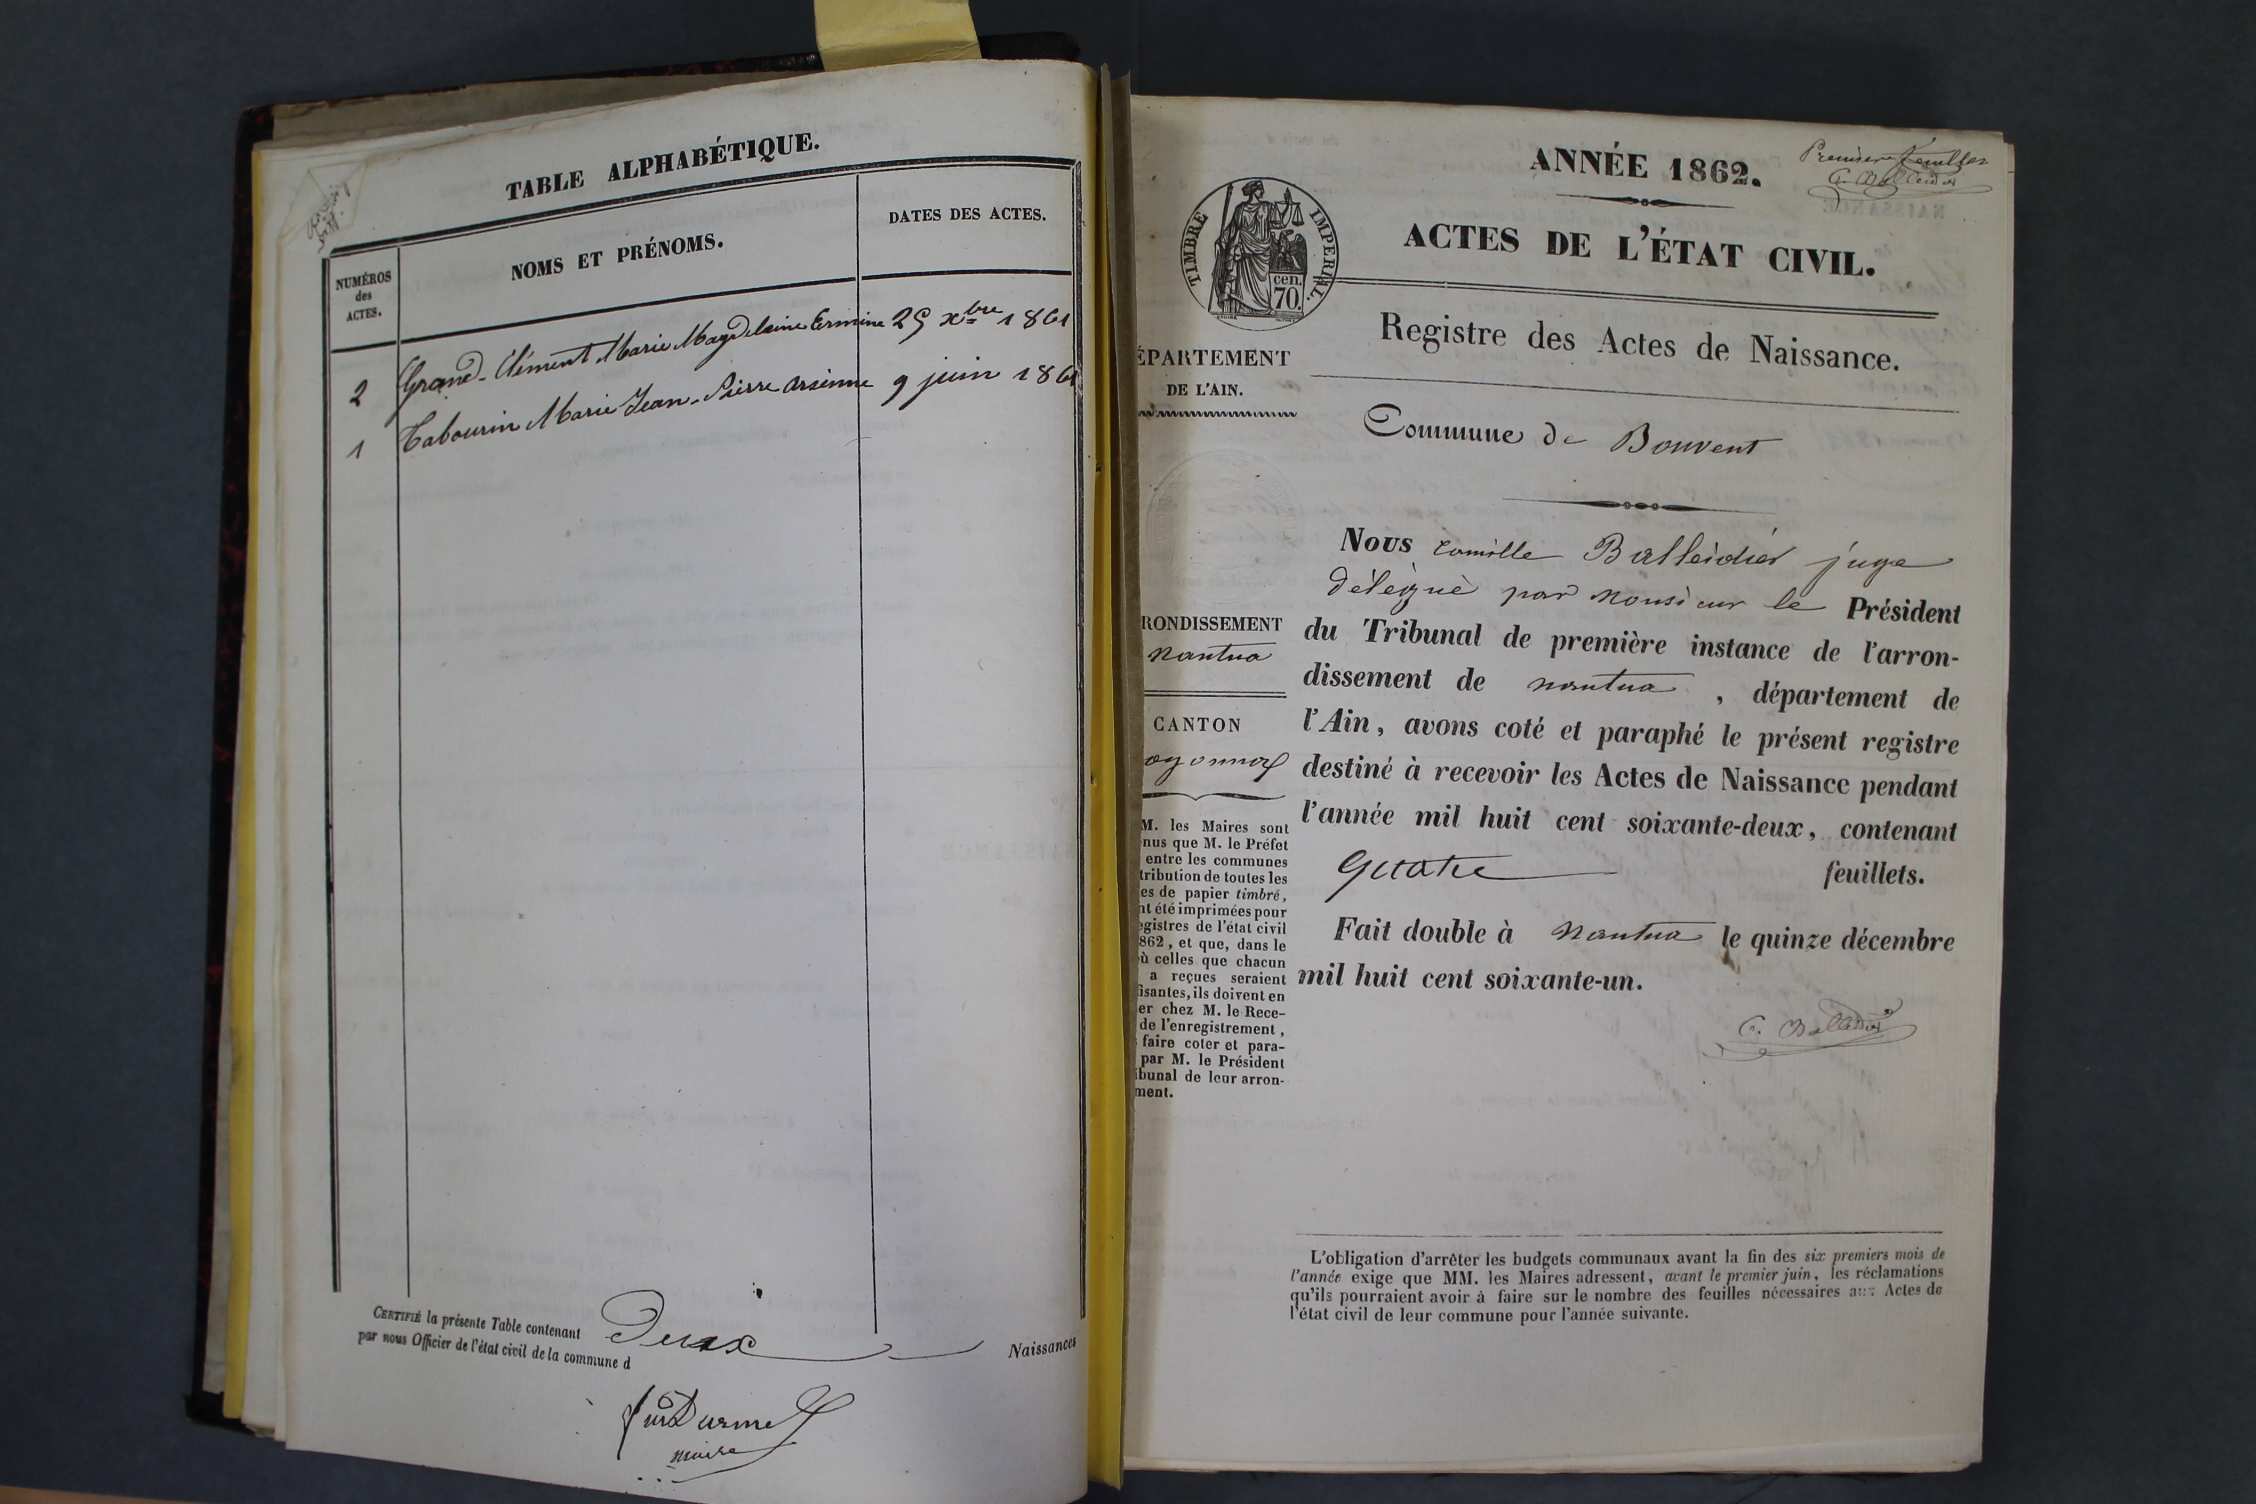 TABLE ALPHABÉTIQUE.
NUMÉROS
des
ACTES.
NOMS ET PRÉNOMS.
DATES DES ACTES.
2 Grand-Clément Marie Magdelaine Ermine 25 xbre 1861
1 Tabourin Marie Jean-Pierre Arsenne 9 juin 1861
CERTIFIÉ la présente Table contenant Deux Naissances
par nous Officier de l'état civil de la commune d
maire
Premier feuillet
C. Balleidier
ANNÉE 1862.
TIMBRE IMPERIAL.
cen.
70.
ACTES DE L'ÉTAT CIVIL.
Registre des Actes de Naissance.
ÉPARTEMENT
DE L'AIN.
Commune de Bouvent
RONDISSEMENT
nantua
CANTON
oyonnax
M. les Maires sont
nus que M. le Préfet
entre les communes
tribution de toutes les
es de papier timbré,
nt été imprimées pour
egistres de l'état civil
862, et que, dans le
ù celles que chacun
a reçues seraient
fisantes, ils doivent en
er chez M. le Rece-
de l'enregistrement,
faire coter et para-
par M. le Président
ibunal de leur arron-
ment.
Nous Camille Balleidier juge
délégué par Monsieur le Président
du Tribunal de première instance de l'arron-
dissement de nantua, département de
l'Ain, avons coté et paraphé le présent registre
destiné à recevoir les Actes de Naissance pendant
l'année mil huit cent soixante-deux, contenant
Quatre feuillets.
Fait double à nantua le quinze décembre
mil huit cent soixante-un.
C. Balleidier
L'obligation d'arrêter les budgets communaux avant la fin des six premiers mois de
l'année exige que MM. les Maires adressent, avant le premier juin, les réclamations
qu'ils pourraient avoir à faire sur le nombre des feuilles nécessaires aux Actes de
l'état civil de leur commune pour l'année suivante.